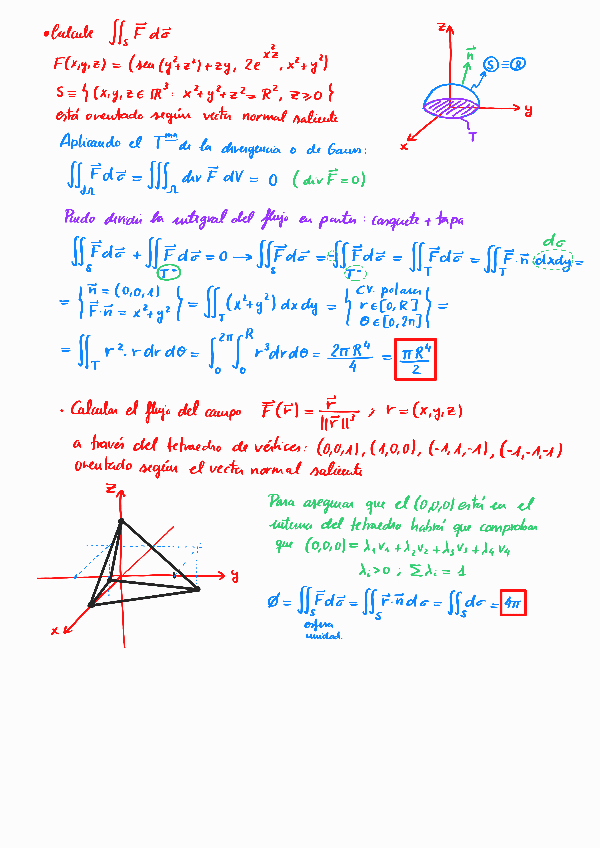 • Calcule ∬_S F⃗ dσ⃗
F(x,y,z) = (sen(y²+z²)+zy, 2e^{x²z}, x²+y²)
S ≡ { (x,y,z ∈ ℝ³ : x²+y²+z² = R², z≥0 }
está orientado según vector normal saliente
z
n⃗
S ≡ Ω
y
x
T
Aplicando el T^{ma} de la divergencia o de Gauss:
∬_{∂Ω} F⃗ dσ⃗ = ∭_Ω div F⃗ dV = 0 (div F⃗ = 0)
Puedo dividir la integral del flujo en partes: casquete + tapa
∬_S F⃗ dσ⃗ + ∬_{T⁻} F⃗ dσ⃗ = 0 → ∬_S F⃗ dσ⃗ = -∬_{T⁻} F⃗ dσ⃗ = ∬_T F⃗ dσ⃗ = ∬_T F⃗ · n⃗ dxdy =
dσ
= { n⃗ = (0,0,1) F⃗ · n⃗ = x²+y² } = ∬_T (x²+y²) dxdy = { C.V. polares r ∈ [0,R] θ ∈ [0,2π] } =
= ∬_T r² · r dr dθ = ∫_0^{2π} ∫_0^R r³ dr dθ = 2πR⁴/4 = πR⁴/2
• Calcular el flujo del campo F⃗(r⃗) = r⃗/||r⃗||³ ; r = (x,y,z)
a través del tetraedro de vértices: (0,0,1), (1,0,0), (-1,1,-1), (-1,-1,-1)
orientado según el vector normal saliente
z
y
x
Para asegurar que el (0,0,0) está en el
interior del tetraedro habrá que comprobar
que (0,0,0) = λ₁v₁ + λ₂v₂ + λ₃v₃ + λ₄v₄
λᵢ > 0 ; Σλᵢ = 1
Ø = ∬_S F⃗ dσ⃗ = ∬_S r⃗ · n⃗ dσ = ∬_S dσ = 4π
esfera
unidad.